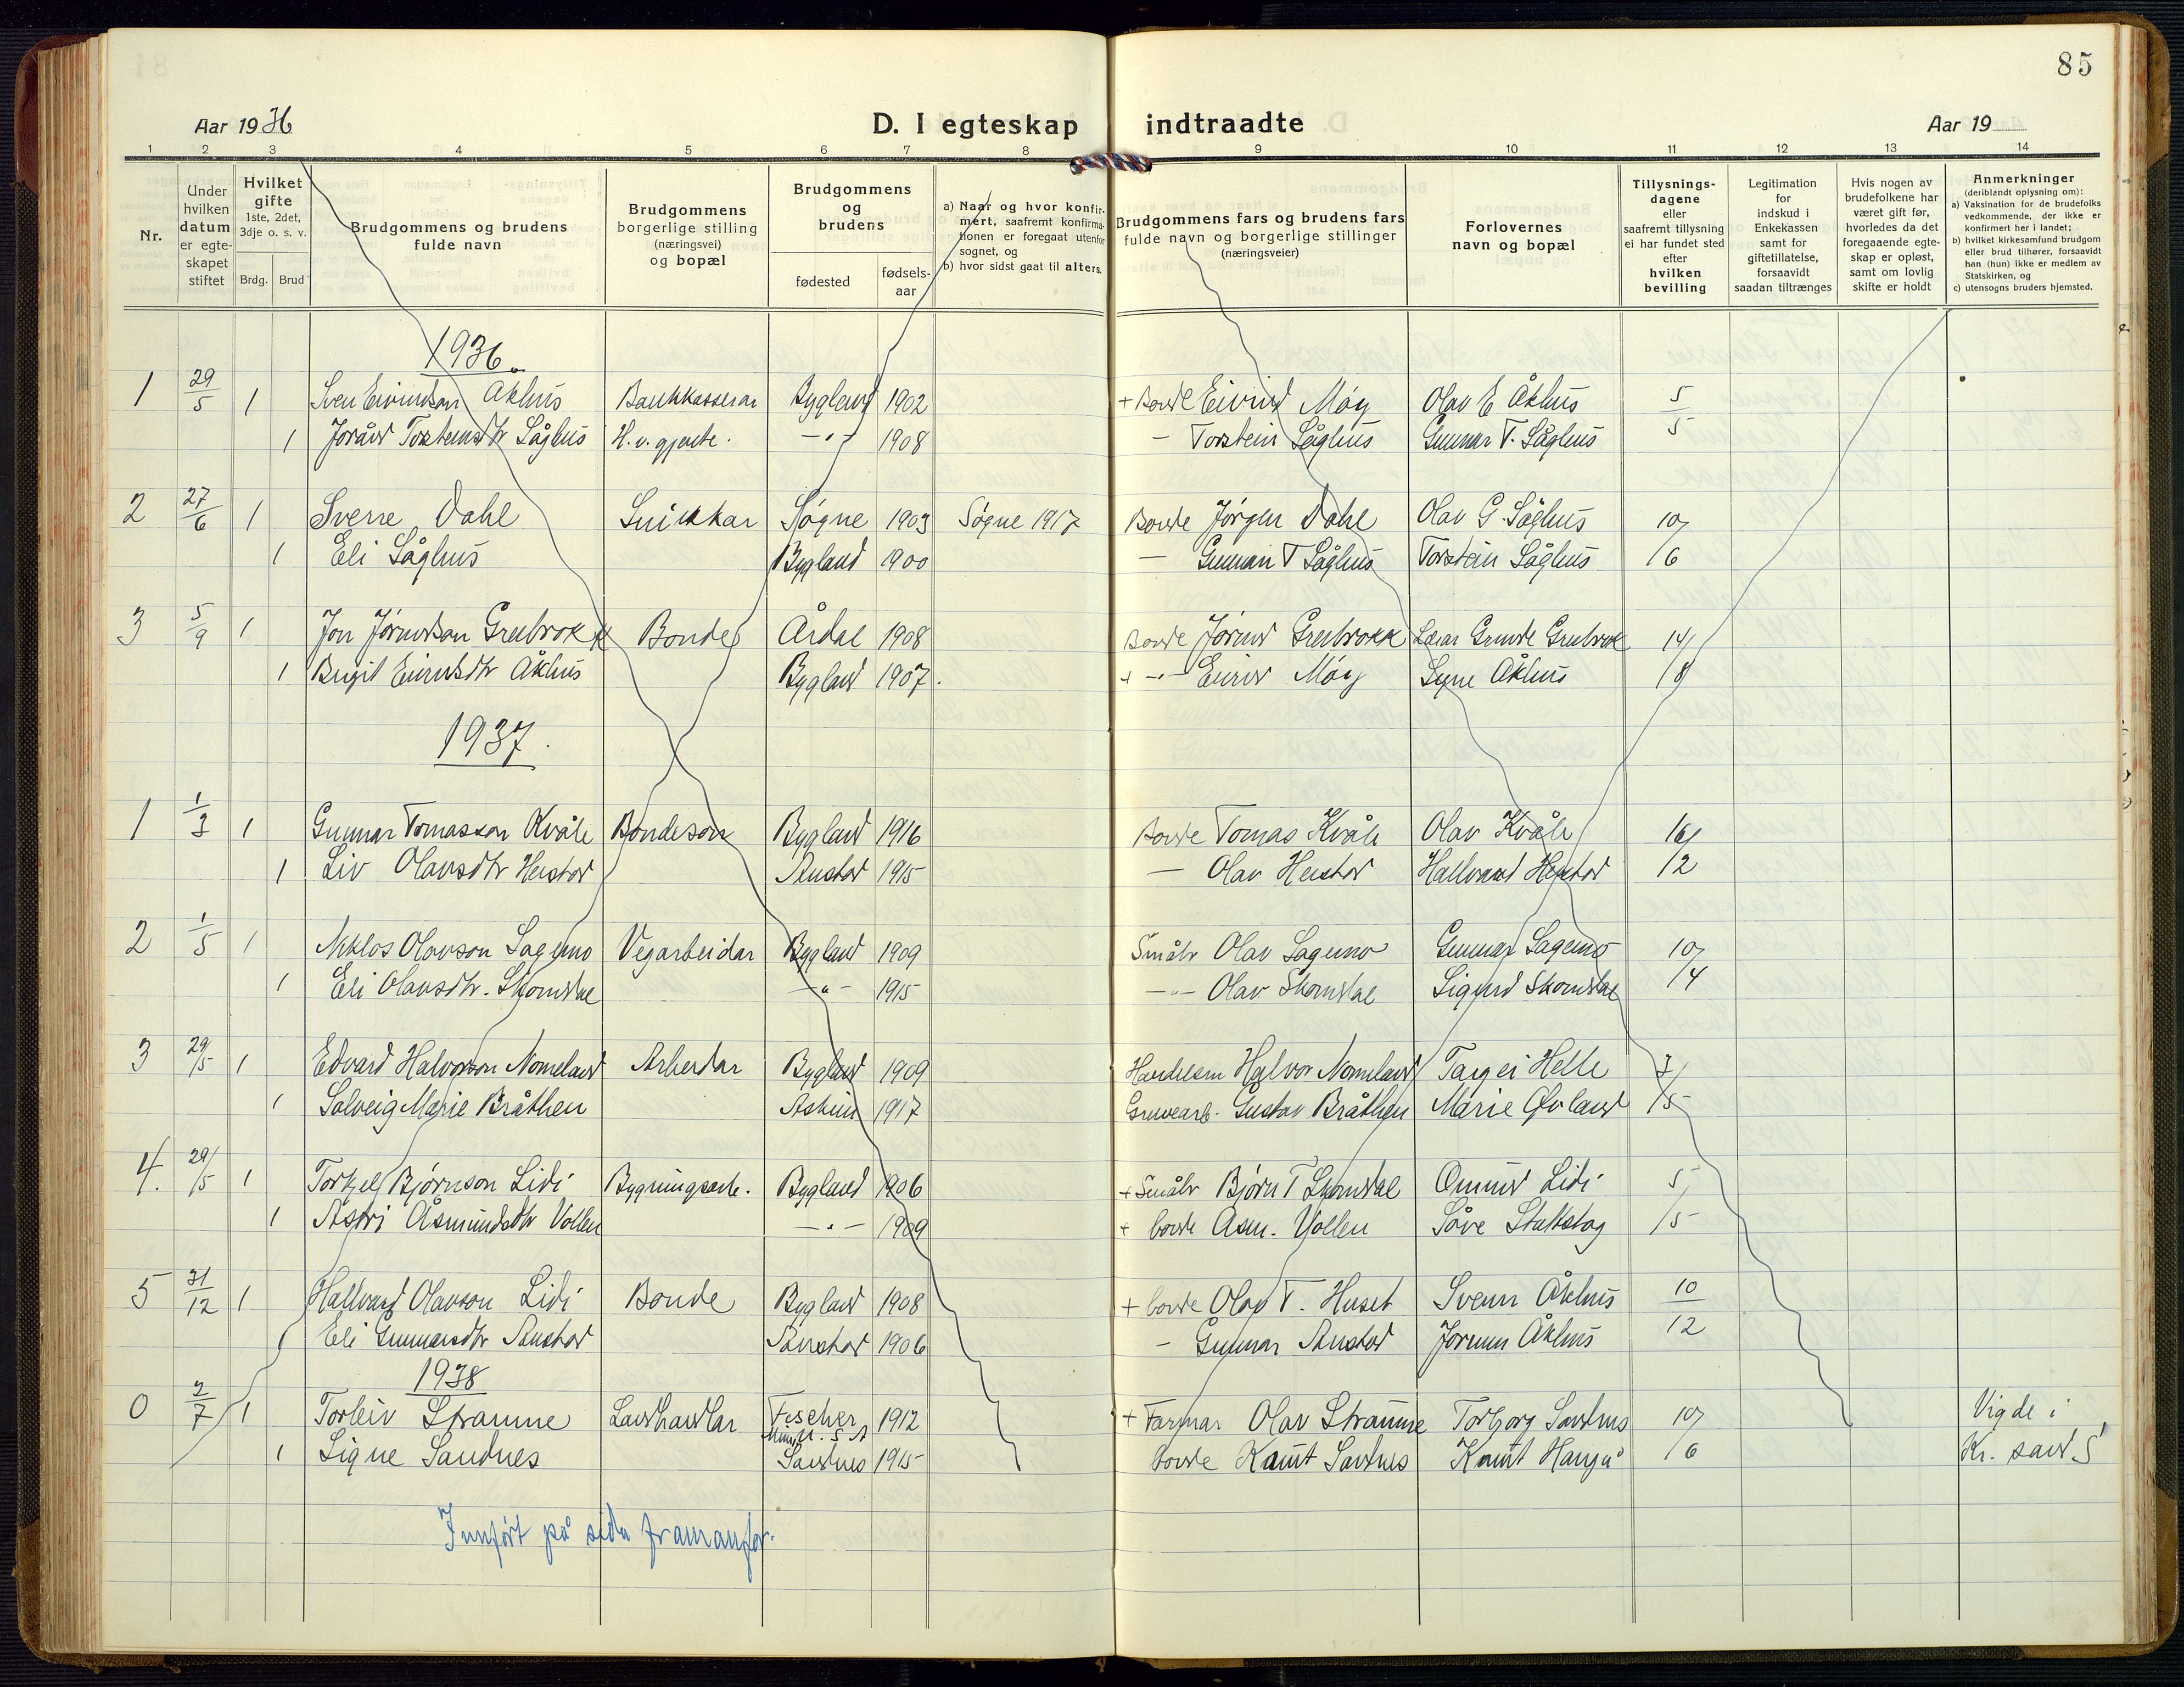 85
Aar 1936 D. I egteskap indtraadte Aar 19
1 2 3 4 5 6 7 8 9 10 11 12 13 14
Nr.
Under hvilken datum er egteskapet stiftet
Hvilket gifte 1ste, 2det, 3dje o. s. v.
Brdg. Brud
Brudgommens og brudens fulde navn
Brudgommens borgerlige stilling (næringsvei) og bopæl
Brudgommens og brudens
fødested fødselsaar
a) Naar og hvor konfirmert, saafremt konfirmationen er foregaat utenfor sognet, og
b) hvor sidst gaat til alters.
Brudgommens fars og brudens fars fulde navn og borgerlige stillinger (næringsveier)
Forlovernes navn og bopæl
Tillysningsdagene eller saafremt tillysning ei har fundet sted efter hvilken bevilling
Legitimation for indskud i Enkekassen samt for giftetillatelse, forsaavidt saadan tiltrænges
Hvis nogen av brudefolkene har været gift før, hvorledes da det foregaaende egteskap er opløst, samt om lovlig skifte er holdt
Anmerkninger (deriblandt oplysning om):
a) Vaksination for de brudefolks vedkommende, der ikke er konfirmert her i landet;
b) hvilket kirkesamfund brudgom eller brud tilhører, forsaavidt han (hun) ikke er medlem av Statskirken, og
c) utensogns bruders hjemsted.
1936
1 29/5 1 Sven Eivindson Åkhus Bankkasserar Bygland 1902 + Bonde Eivind Moy Olav E Åkhus 5/5
1 Jorånd Torsteinsdtr Såghus H.v. gjente. -"- 1908 - Torstein Såghus Gunnar T. Såghus
2 27/6 1 Sverre Dahl Snikkar Søgne 1903 Søgne 1917 Bonde Jørgen Dahl Olav G. Såghus 10/6
1 Eli Såghus Bygland 1900 - Gunnar T Såghus Torstein Såghus
3 5/9 1 Jon Jørundson Greibrokk Bonde Årdal 1908 Bonde Jørund Greibrokk Lærar Greibrokk 14/8
1 Birgit Eivindsdtr Åkhus Bygland 1907. + -"- Eivind Moy Åkhus
1937.
1 1/3 1 Gunnar Tomasson Kvåle Bondeson Bygland 1916 Bonde Tomas Kvåle Olav Kvåle 16/12
1 Liv Olavsdtr Heistad Austad 1915 - Olav Heistad Hallvard Heistad
2 1/5 1 Niklos Olavson Sagemo Vegarbeidar Bygland 1909 Småbr Olav Sagemo Gunnar Sagemo 10/4
1 Eli Olavsdtr. Skomdal -"- 1915 -"- Olav Skomdal Sigurd Skomdal
3 29/5 1 Edvard Halvorson Nomeland Arbeidar Bygland 1909 Handelsm Halvor Nomeland Targei Helle 3/5
1 Solveig Marie Bråthen Askim 1917 Gruvearb. Gustav Bråthen Marie Øvland
4. 29/5 1 Torkjel Bjørnson Lidi Bygningsarb. Bygland 1906 + Småbr Bjørn T Skomdal Omund Lidi 5/5
1 Åsmundsdtr Vollen -"- 1909 + bonde Åsm. Vollen
5 31/12 1 Hallvard Olavson Lidi Bonde Bygland 1908 + bonde Olav T. Huset Sveinn Åkhus 10/12
1 Eli Gunnarsdtr Austad Austad 1906 - Gunnar Austad Jorunn Åkhus
1938
0 2/7 1 Torleiv Straume Fischer Minn. U.S.A 1912 + Farmar Olav Straume Torborg Sandnes 10/6 Vigde i
1 Signe Sandnes Sandnes 1915 bonde Knut Sandnes Knut Hangå Kr. sand S
Innført på sida framanfor.